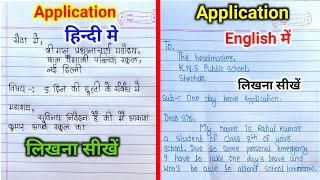 Application
हिन्दी मे
सेवा में,
श्रीमान प्रधानाचार्य महोदय,
बाल वैशाली पब्लिक स्कूल,
नई दिल्ली
विषय :- 5 दिन की छुट्टी के संबंध में
महाशय,
सविनय निवेदन है की मैं आकाश
कुमार आपके स्कूल का
लिखना सीखें
Application
English में
To,
The headmaster,
K.N.S Public School,
Sub:- One day leave Application.
Dear Sir,
My name is Rahul Kumar
a student of class 8th of your
school. Due to some personal emergency
I have to take one day's leave and
won't be able to attend school tomorrow.
लिखना सीखें